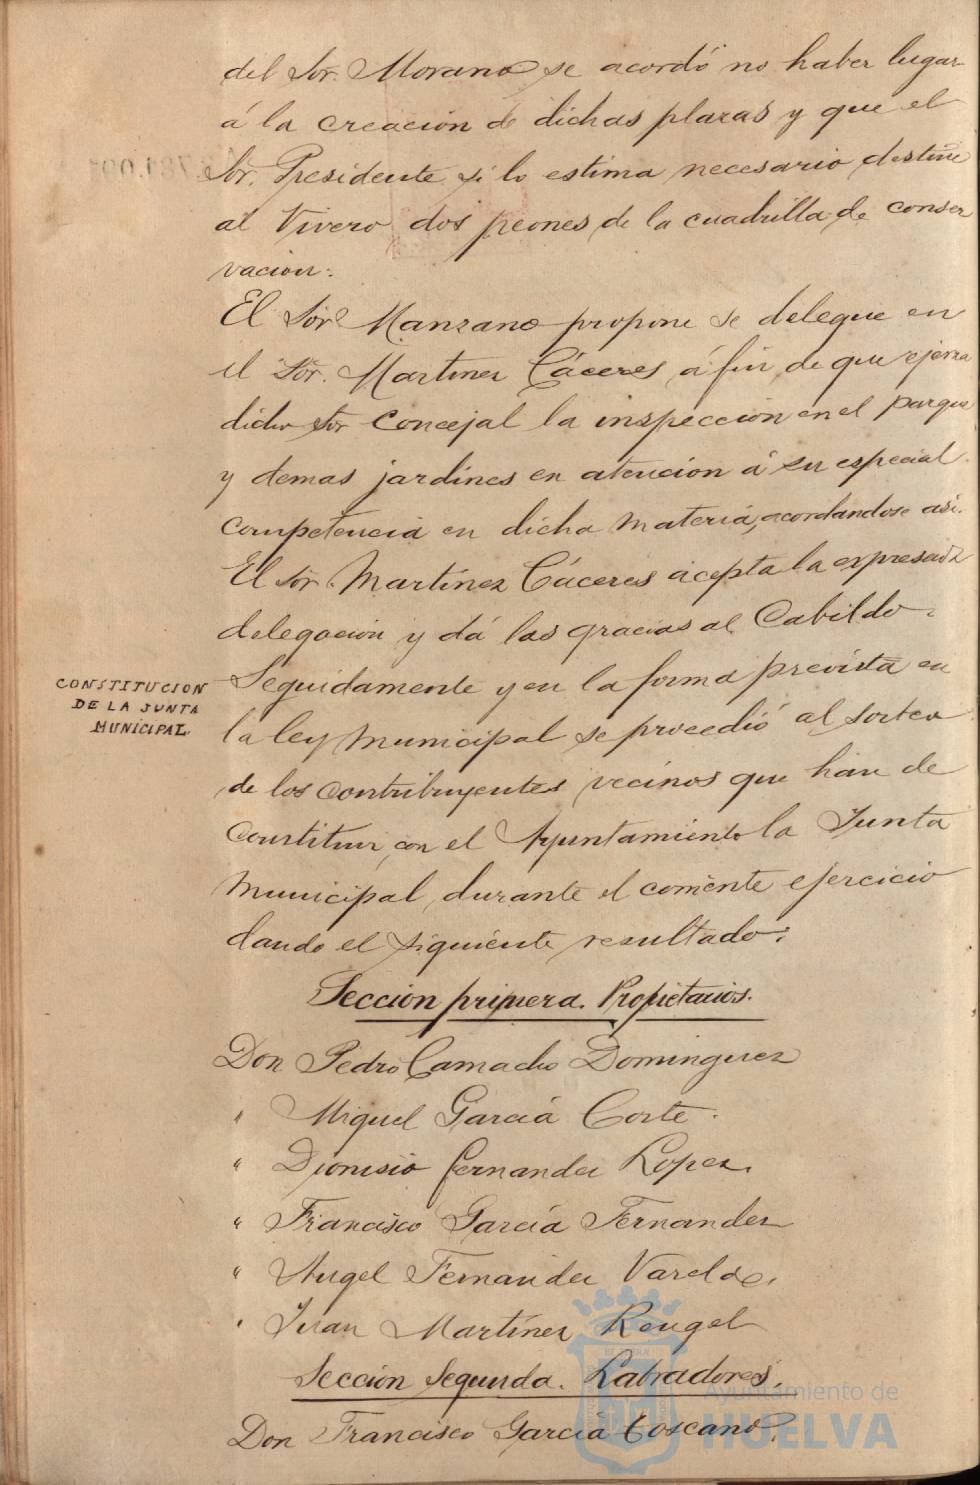 del Sor. Morano se acordó no haber lugar
á la creación de dichas plazas y que el
Sor. Presidente si lo estima necesario destine
al Vivero dos peones de la cuadrilla de conser
vacion.
El Sor. Manzano propone se delegue en
el Sor. Martinez Cáceres, á fin de que ejerza
dicho Sor Concejal la inspección en el parque
y demas jardines en atención á su especial
competencia en dicha materia, acordandose asi.
El Sor. Martínez Cáceres acepta la expresada
delegación y dá las gracias al Cabildo.
CONSTITUCION
DE LA JUNTA
MUNICIPAL.
Seguidamente y en la forma prevista en
la ley Municipal se procedió al sorteo
de los contribuyentes vecinos que han de
constituir, con el Ayuntamiento la Junta
Municipal, durante el corriente ejercicio
dando el siguiente resultado:
Sección primera. Propietarios.
Don Pedro Camacho Dominguez
" Miguel García Corte.
" Dionisio Fernandez Lopez.
" Francisco García Fernandez
" Angel Fernandez Varela.
" Juan Martínez Rengel
Sección Segunda. Labradores.
Don Francisco García Toscano.
Ayuntamiento de
HUELVA